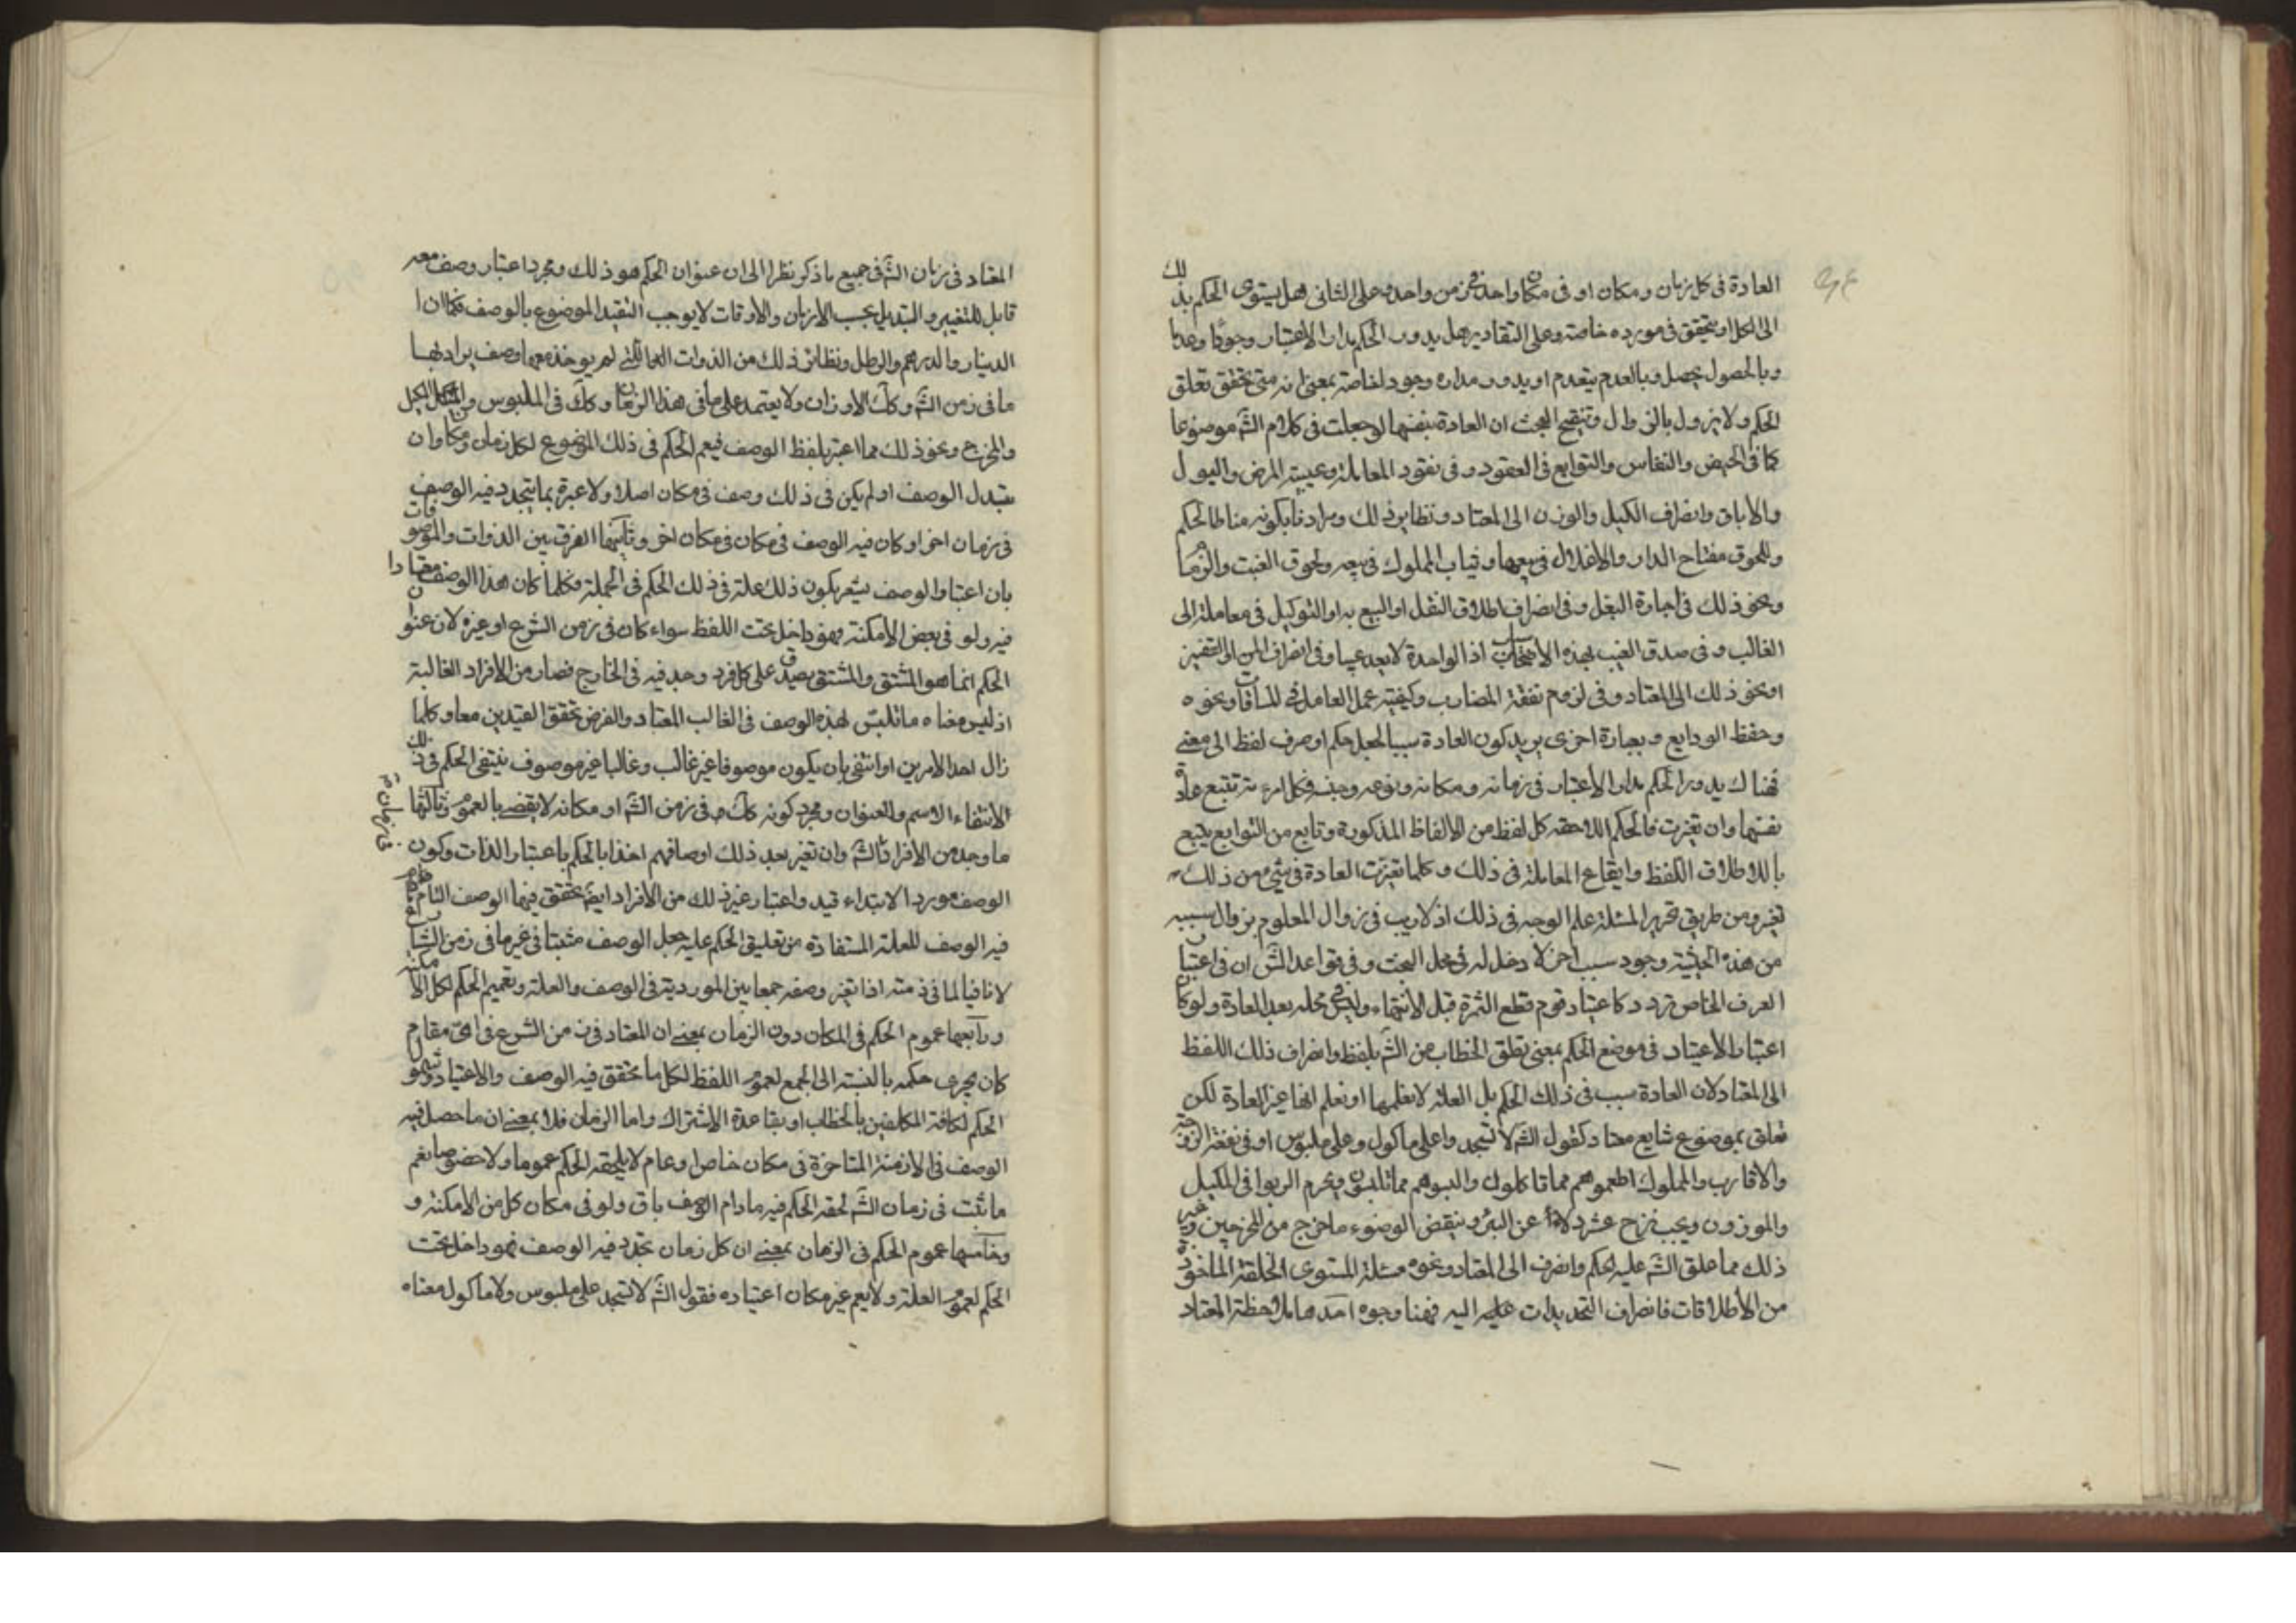 العادة في كل زمان ومكان او في مكان واحد في زمن واحد وعلى الثاني فهل يستوى الحكم بذلك
الى الكل او يتحقق في مورده خاصة وعلى التقادير هل يدور الحكم مدار الاعتبار وجودا وعدما
وبالحصول يحصل وبالعدم ينعدم او يدور مداره وجود الخاصة بمعنى انه متى تحقق تعلق
الحكم ولا يزول بالزوال وتنقيح البحث ان العادة بنفسها لو جعلت في كلام الش موضوعا
كما في الحيض والنفاس والتوابع في العقود وفي نقود المعاملة وعيبية المرض والبول
والاباق وانصراف الكيل والوزن الى المعتاد ونظاير ذلك ومرادنا بكونه مناطا لحكم
وللحوق مفتاح الدار والاغلال في بيعها وثياب المملوك في بيعه ولحوق الغبن والزمان
ونحو ذلك في اجارة البغل وفي انصراف اطلاق النقل او البيع به او التوكيل في معاملة الى
الغالب وفي صدق العيب بهذه الاصحاب اذ الواحدة لا يعد عيبا وفي انصراف المن او القفيز
او نحو ذلك الى المعتاد وفي لزوم نفقة المضارب وكيفية عمل العامل في المساقات ونحوه
وحفظ الودايع وبعبارة اخرى يريد كون العادة سببا لجعل حكم او صرف لفظ الى معنى
فهناك يدور الحكم مدار الاعتبار في زمانه ومكانه ونوعه وجنسه فكل امرء تتبع عادة
نفسها وان تغيرت فالحكم اللاحقه كل لفظ من الالفاظ المذكورة وتابع من التوابع يتبع
بالاطلاق اللفظ وايقاع المعاملة في ذلك وكلما تغيرت العادة في شيء من ذلك
تغير ومن طريق تحرير المسئلة علم الوجه في ذلك اذ لا ريب في زوال المعلوم بزوال سببه
من هذه الحيثية وجود سبب اخر لا دخل له في محل البحث وفي قواعد الش ان في اعتبار
العرف الخاص تردد كاعتياد قوم قطع الثمرة قبل الانتهاء وليس محله بعد العادة ولو كان
اعتبار الاعتياد في موضع الحكم بمعنى تعلق الخطاب من الش بلفظ وانصراف ذلك اللفظ
الى المعتاد لان العادة سبب في ذلك الحكم بل العلة لا نعلمها او نعلم انها غير العادة لكن
تعلق بموضوع شايع معتاد كقول الش لا تسجدوا على ماكول وعلى ملبوس او في نفقة الزوجة
والاقارب والمملوك اطعموهم مما تاكلون والبسوهم مما تلبسون ويحرم الربوا في المكيل
والموزون ويجب نزح عشر دلاء عن البئر وينقض الوضوء ما خرج من المخرجين وغير
ذلك مما علق الش عليه الحكم وانصرف الى المعتاد ونحوه مسئلة المستوى الخلقة الماخوذة
من الاطلاقات فانصراف التحديدات عليه اليه فهنا وجوه احدها ملاحظة المعتاد
المعتاد في زمان الش في جميع ما ذكر نظرا الى ان عنوان الحكم هو ذلك ومجرد اعتبار وصف معه
قابل للتغيير والتبديل بحسب الازمان والاوقات لا يوجب التقييد الموضوع بالوصف فكما ان
الدينار والدرهم والرطل ونظائر ذلك من الذوات العامة التي لم يوخذ معها وصف يراد بها
ما في زمن الش وكك الاوزان ولا يعتمد على ما في هذا الزمان وكك في الملبوس والماكول
والمخرج ونحو ذلك مما اعتبر بلفظ الوصف فيعم الحكم في ذلك الموضوع لكل زمان ومكان وان
يتبدل الوصف او لم يكن في ذلك وصف في مكان اصلا ولا عبرة بما يتجدد فيه الوصف
في زمان اخر او كان فيه الوصف في مكان في مكان اخر وثانيها الفرق بين الذوات والموصوفات
بان اعتبار الوصف يشعر بكون ذلك علة في ذلك الحكم في الجملة وكلما كان هذا الوصف معتادا
فيه ولو في بعض الامكنة فهو داخل تحت اللفظ سواء كان في زمن الشرع او غيره لان عنوان
الحكم انما هو المشتق والمشتق يصدق على كل فرد وجد فيه في الخارج فصار من الافراد الغالبة
اذ ليس معناه ما تلبس بهذه الوصف في الغالب المعتاد والفرض تحقق القيدين معا وكلما
زال احد الامرين او انتفى بان يكون موصوفا غير غالب وغالبا غير موصوف ينتفى الحكم في ذلك
الانتفاء الاسم والعنوان ومجرد كونه كك في زمن الش او مكانه لا يقضي بالعموم وثالثها
ما وجد من الافراد الش وان تغير بعد ذلك اوصافهم اخذا بالحكم باعتبار الذات وكون
الوصف مورد الابتداء قيد واعتبار غير ذلك من الافراد ايض تحقق فيها الوصف
فيه الوصف للعلة المستفادة من تعليق الحكم عليه جعل الوصف مثبتا في غير ما في زمن الش
لا نافيا لما في زمنه اذا تغير وصفه جمعا بين الموردية في الوصف والعلة وتعميم الحكم لكل الامكنة
ورابعها عموم الحكم في المكان دون الزمان بمعنى ان المعتاد في زمن الشرع في اي مقام
كان يجرى حكمه بالنسبة الى الجمع لعموم اللفظ لكل ما تحقق فيه الوصف والاعتياد وشمول
الحكم لكافة المكلفين بالخطاب او بقاعدة الاشتراك واما الزمان فلا بمعنى ان ما حصل فيه
الوصف في الازمنة المتاخرة في مكان خاص او عام لا يلحقه الحكم عموما ولا خصوصا نعم
ما ثبت في زمان الش لحقه الحكم فيه ما دام الوصف باق ولو في مكان كل من الامكنة و
وخامسها عموم الحكم في الزمان بمعنى ان كل زمان تجدد فيه الوصف فهو داخل تحت
الحكم لعموم العلة ولا يعم غير مكان اعتياده فقول الش لا تسجد على ملبوس ولا ماكول معناه